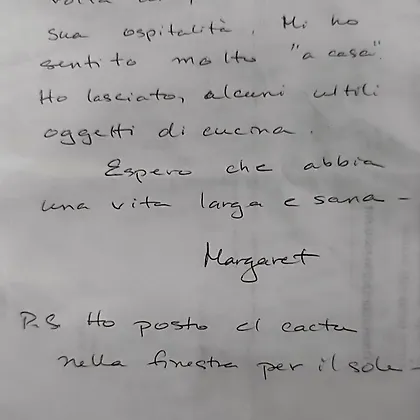 sua ospitalità. Mi ho
sentito molto "a casa".
Ho lasciato, alcuni utili
oggetti di cucina.
Espero che abbia
una vita larga e sana -
Margaret
P.S Ho posto el cactu
nella finestra per il sole -